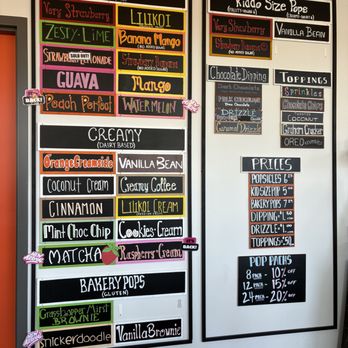 Very Strawberry
LILIKOI
ZESTY-LIME
Banana Mango
STRAWBERRY LEMONADE
SOLD OUT
Strawberry Banana
GUAVA
Mango
BACK!
Peach Perfect
WATERMELON
CREAMY
(DAIRY BASED)
Orange Creamside
VANILLA BEAN
Coconut Cream
Creamy Coffee
CINNAMON
LILIKOI CREAM
Mint Choc Chip
Cookies & Cream
MATCHA
Raspberry-Cream
IT'S BACK!
BAKERY POPS
(GLUTEN)
Grasshopper/Mint
BROWNIE
snickerdoodle
Vanilla Brownie
Kiddo Size Pops
Very Strawberry
VANILLA BEAN
Strawberry Banana
Chocolate Dipping
TOPPINGS
Dark Chocolate
Sprinkles
MILK CHOCOLATE
Chocolate Chips
DRIZZLE
COCONUT
Graham Cracker
Caramel Drizzle
OREO
PRICES
POPSICLES 6
KID SIZE POP 5
BAKERY POPS 7
DIPPING +1
DRIZZLE +1
TOPPINGS +.50
POP PACKS
8 PACK - 10% OFF
12 PACK - 15% OFF
24 PACK - 20% OFF